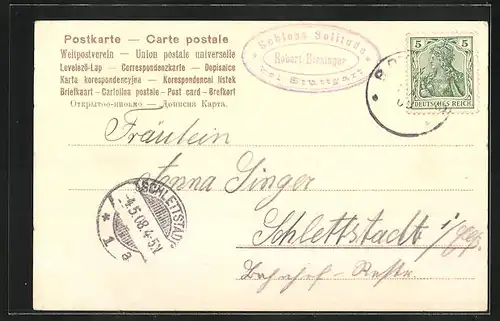 Postkarte – Carte postale
Weltpostverein – Union postale universelle
Levelező-Lap – Correspondenzkarte – Dopisnice
Karta korespondencyjna – Korespondencni listek
Briefkaart – Cartolina postale – Post card – Brefkort
Открытое-письмо – Дописна Карта.
Schloss Solitude
Robert
bei Stuttgart
5 5
DEUTSCHES REICH
Fräulein
Anna Singer
SCHLETTSTADT
-4.5.08.4-5.V
* 1 a
Schlettstadt i/
Bahnhof-